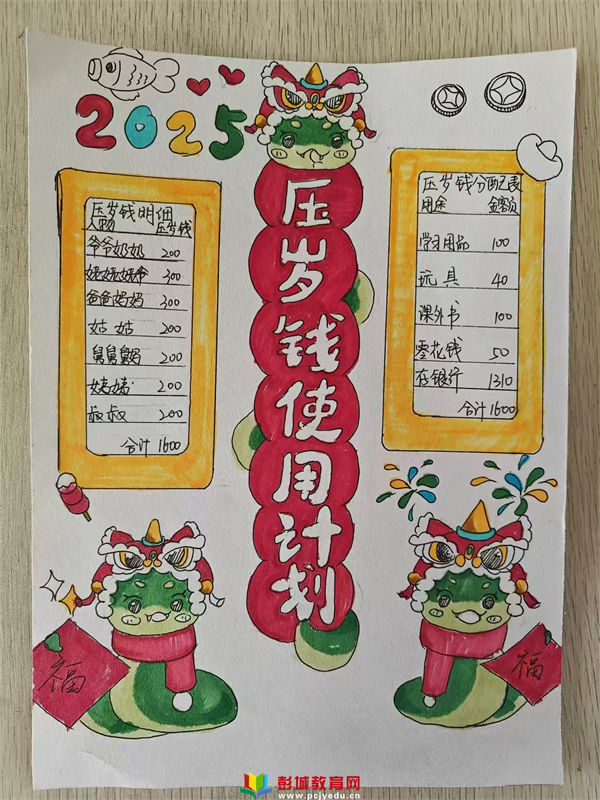 2025
压岁钱使用计划
压岁钱明细
人物 压岁钱
爷爷奶奶 200
姥姥姥爷 300
爸爸妈妈 300
姑姑 200
舅舅舅妈 200
姨姨 200
叔叔 200
合计 1600
压岁钱分配表
用途 金额
学习用品 100
玩具 40
课外书 100
零花钱 50
存银行 1310
合计 1600
福
福
彭城教育网
www.pcjyedu.cn